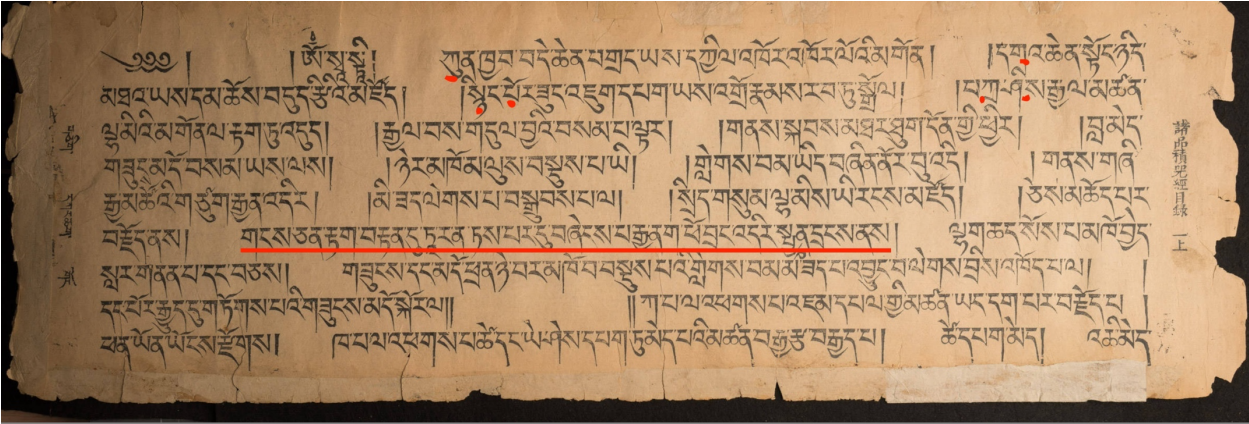 ༄༅༅༅། །ཨོཾ་སྭ་སྟི། ཀུན་ཁྱབ་བདེ་ཆེན་པ་གྲང་ཡས་དཀྱིལ་འཁོར་འཁོར་ལོའི་མགོན། །དགའ་ཆེན་སྟོང་ཉིད་
མཐའ་ཡས་དམ་ཆོས་བདུད་རྩིའི་མཛོད། །སྙིང་པོར་ཟུང་འཇུག་དཔག་ཡས་འགྲོ་རྣམས་རབ་ཏུ་སྒྲོལ།། །བཀའ་ཤིས་རྒྱལ་མཚན་
ལྷ་མིའི་མགོན་ལ་རྟག་ཏུ་འདུད། །རྒྱལ་བས་གདུལ་བྱའི་བསམ་པ་ལྟར། །གནས་སྐབས་མཐར་ཐུག་དོན་གྱི་ཕྱིར། །བླ་མེད་
གཟུངས་མདོ་བསམ་ཡས་ལས།། །ཉེར་མཁོ་མ་ལུས་བསྡུས་པ་ཡི། །གླེགས་བམ་ཡིད་བཞིན་ནོར་བུ་འདི། །གནས་གཞི་
རྒྱ་མཚོའི་གཙུག་རྒྱན་འདིར། །མི་ཟད་ལེགས་པ་བསྒྲུབས་པ་ལ། །སྲིད་གསུམ་ལྷ་མིས་ཡི་རངས་མཛོད། །ཅེས་མཆོད་པར་
བརྗོད་ནས། གངས་ཅན་རྟག་བརྟན་དུ་ཏུ་རན་ཏས་པར་དུ་བཞེངས་པ་རྒྱནག་ཕོ་བྲང་འདིར་སྤྱན་དྲངས་ནས། ལྷག་ཆད་སོས་པ་མཁོ་བྱེད་
སླར་གནན་པ་དང་བཅས།། གཟུངས་དང་མདོ་ཕྲན་ཉེ་བར་མཁོ་བ་བསྡུས་པའི་གླེགས་བམ་མ་ཟད་པ་འབྱུང་བ་ལེགས་བྲིས་འཁོད་པ་ལ། །
དང་པོར་རྒྱུད་དུ་གཏོགས་པའི་གཟུངས་མདོ་སྐོར་ལ།། །།ཀ་པ་ལ་འཕགས་པ་འཇམ་དཔལ་གྱི་མཚན་ཡང་དག་པར་བརྗོད་པ །
ཕན་ཡོན་ཡོངས་རྫོགས། །ཁ་པ་ལ་འཕགས་པ་ཚེ་དང་ཡེ་ཤེས་དཔག་ཏུ་མེད་པའི་མཚན་བརྒྱ་རྩ་བརྒྱད་པ། ཚེ་དཔག་མེད། འཆི་མེད་
諸品積咒經目録 一上